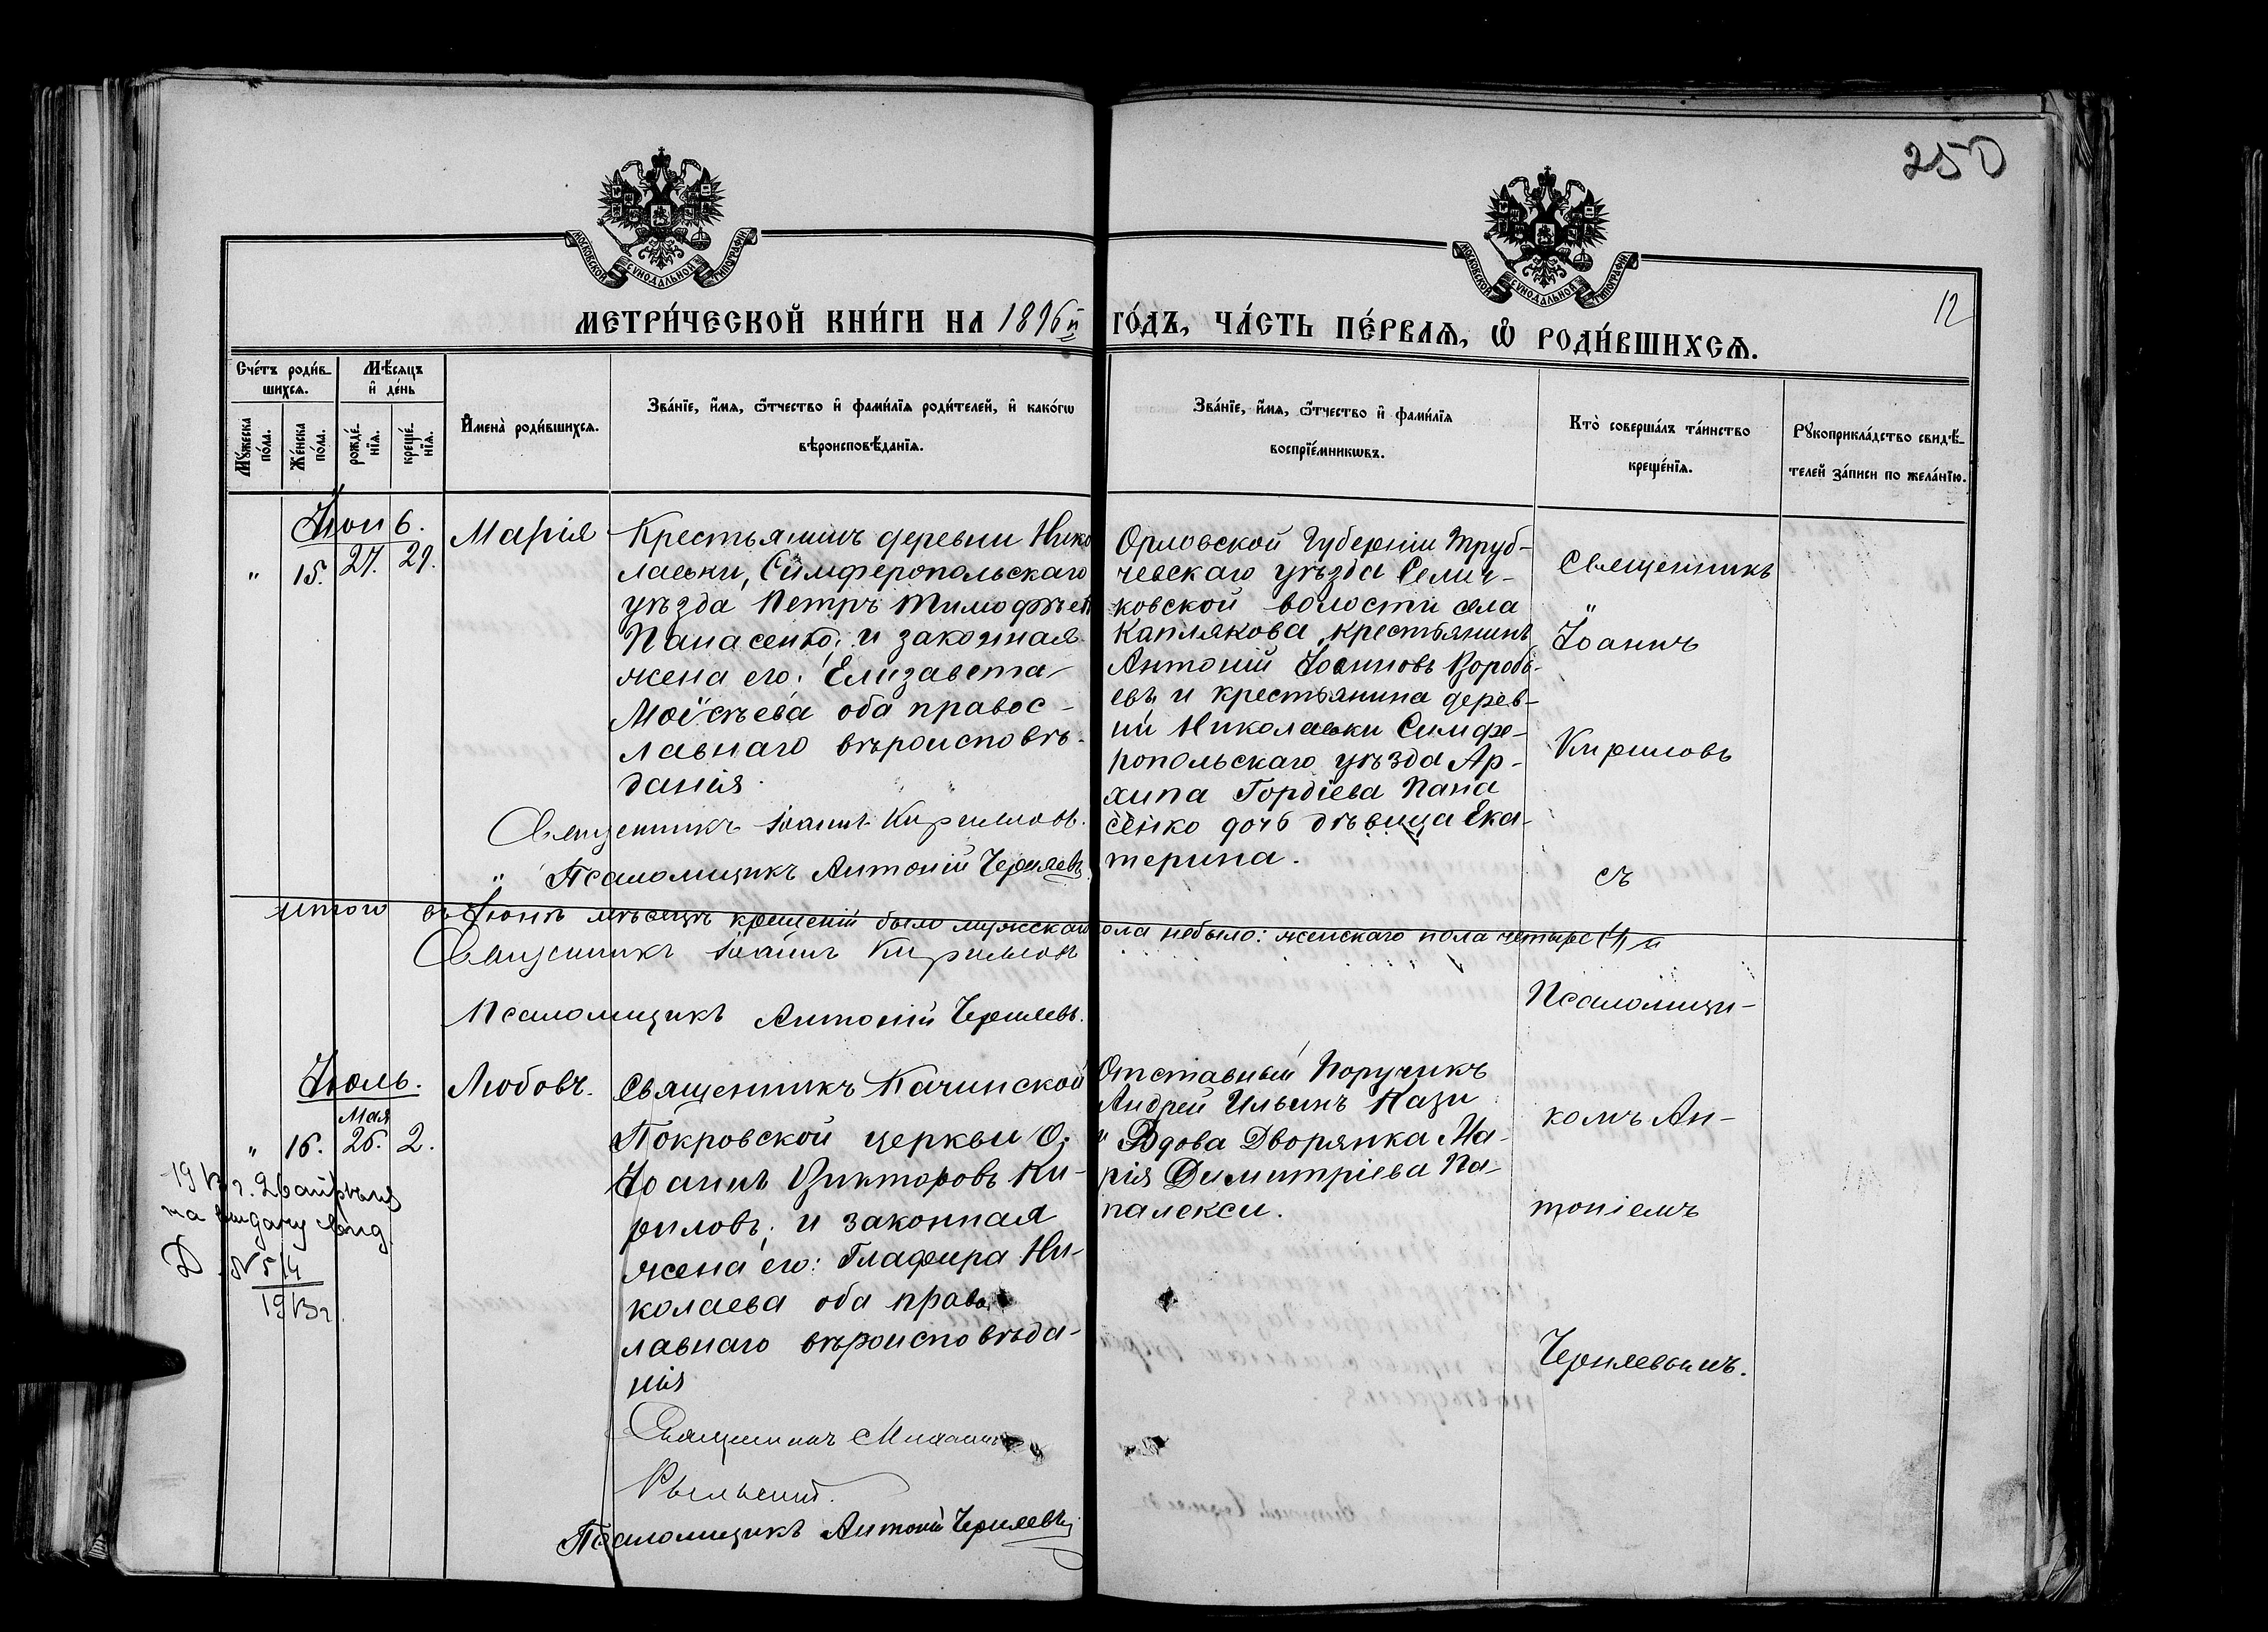 250
12
МОСКОВСКОЙ СѴНОДАЛЬНОЙ ТИПОГРАФІИ
МОСКОВСКОЙ СѴНОДАЛЬНОЙ ТИПОГРАФІИ
МЕТРИ́ЧЕСКОЙ КНИ́ГИ НА 1896 й ГО́ДЪ, ЧА́СТЬ ПЕ́РВАѦ, Ѽ РОДИ́ВШИХСѦ.
Сче́тъ роди́в-
шихсѧ.
Мѣ́сѧцъ
и҆ де́нь
Мꙋ́жеска
по́ла.
Же́нска
по́ла.
рожде́-
нїѧ.
креще́-
нїѧ.
И҆мена̀ роди́вшихсѧ.
Зва́нїе, и҆́мѧ, ѻ҆́тчество и҆ фами́лїѧ роди́телей, и҆ како́гѡ
вѣроисповѣ́данїѧ.
Зва́нїе, и҆́мѧ, ѻ҆́тчество и҆ фами́лїѧ
воспрїе́мникѡвъ.
Кто̀ соверша́лъ та́инство
креще́нїѧ.
Рꙋкоприкла́дство свидѣ́-
телей за́писи по жела́нїю.
Іюнь.
" 15. 27. 29.
Марія
Крестьянинъ деревни Нико
лаевки, Симферопольскаго
уѣзда Петръ Тимофѣев
Панасенко, и законная
жена его: Елизавета
Моисѣева оба правос-
лавнаго вѣроисповѣ-
данія.
Священникъ Іоаннъ Кириловъ.
" Псаломщикъ Антоній Черняевъ
Орловской Губерніи Труб-
чевскаго уѣзда Селич-
ковской волости села
Каплякова крестьянинъ
Антоній Іоанновъ Воробь-
евъ и крестьянина дерев-
ни Николаевки Симфе-
ропольскаго уѣзда Ар-
хипа Гордіева Пана
сенко дочь дѣвица Ека-
терина.
Священникъ
"
Іоаннъ
Кириловъ
съ
Псаломщи-
комъ Ан-
тоніемъ
Черняевымъ.
итого въ Іюнѣ мѣсяцѣ крещеній было мужскаго пола небыло: женскаго пола четыре (4)
Священникъ Іоаннъ Кириловъ
Псаломщикъ Антоній Черняевъ.
Іюль.
Мая
" 16. 26. 2.
Любовь.
Священникъ Качинской
Покровской церкви О.
Іоаннъ Викторовъ Ки-
риловъ; и законная
жена его: Глафира Ни-
колаева оба правос
лавнаго вѣроисповѣда-
нія
Священникъ Михаилъ
Рыльскій.
Псаломщикъ Антоній Черняевъ
Отставный Поручикъ
Андрей Ильинъ Кази
" Вдова Дворянка Ма-
рія Димитріева Па-
палекси.
1913 г. 26 апрѣля
на выдачу свид.
№ 514
1913 г.